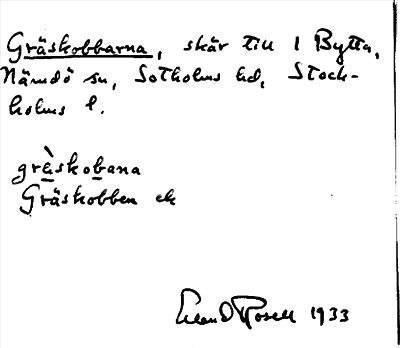 Gräskobbarna, skär till 1 Bytta,
Nämdö sn, Sotholms hd, Stock-
holms l.
grä̀skobana
Gräskobben ek
Rosell 1933